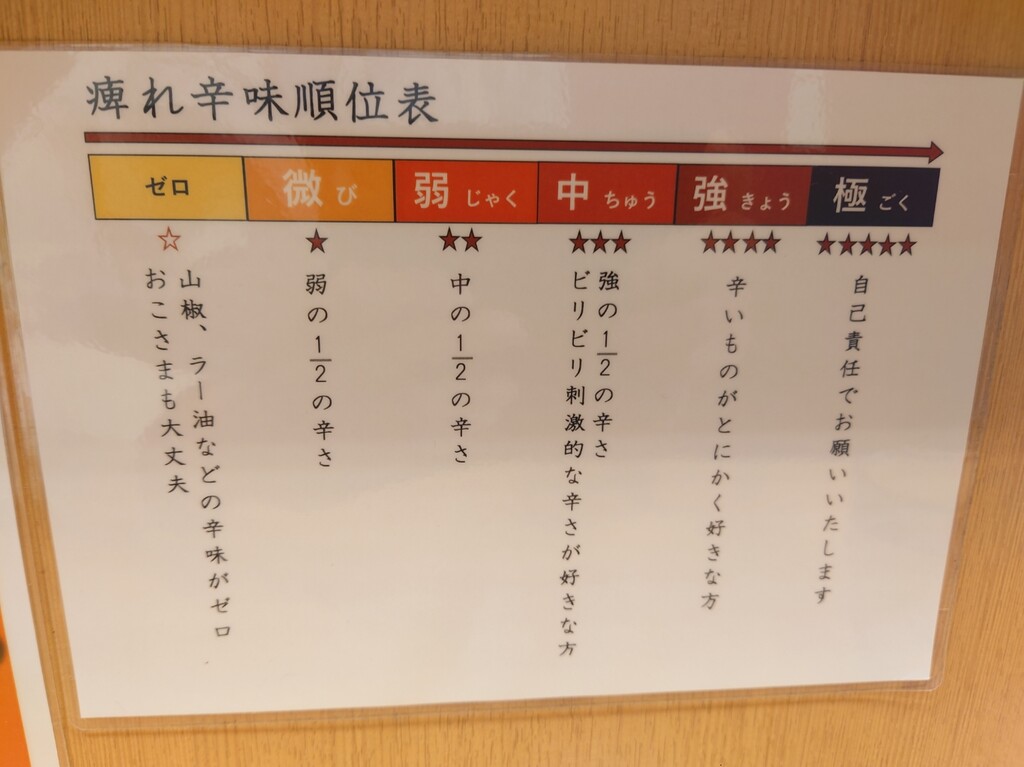 痺れ辛味順位表
ゼロ
☆
山椒、ラー油などの辛味がゼロ
おこさまも大丈夫
微 び
★
弱の1/2の辛さ
弱 じゃく
★★
中の1/2の辛さ
中 ちゅう
★★★
強の1/2の辛さ
ビリビリ刺激的な辛さが好きな方
強 きょう
★★★★
辛いものがとにかく好きな方
極 ごく
★★★★★
自己責任でお願いいたします